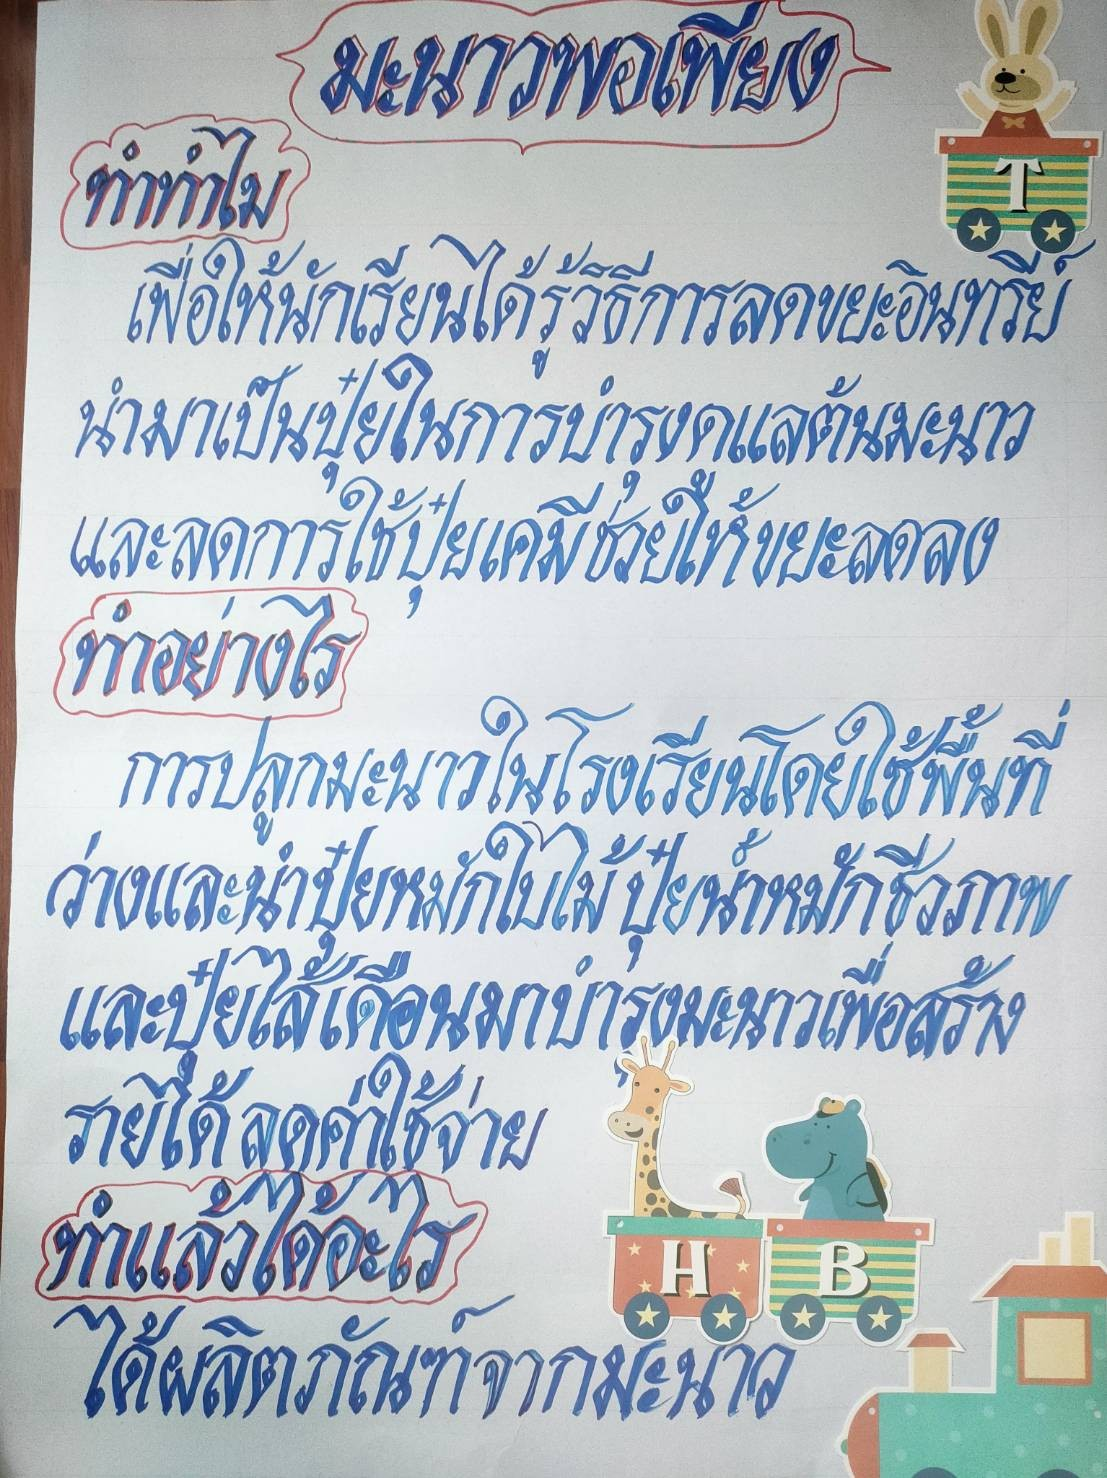 มะนาวพอเพียง
T
ทำทำไม
เพื่อให้นักเรียนได้รู้วิธีการลดขยะอินทรีย์
นำมาเป็นปุ๋ยในการบำรุงดูแลต้นมะนาว
และลดการใช้ปุ๋ยเคมีช่วยให้ขยะลดลง
ทำอย่างไร
การปลูกมะนาวในโรงเรียนโดยใช้พื้นที่
ว่างและนำปุ๋ยหมักใบไม้ ปุ๋ยน้ำหมักชีวภาพ
และปุ๋ยไส้เดือนมาบำรุงมะนาวเพื่อสร้าง
รายได้ ลดค่าใช้จ่าย
ทำแล้วได้อะไร
H B
ได้ผลิตภัณฑ์จากมะนาว